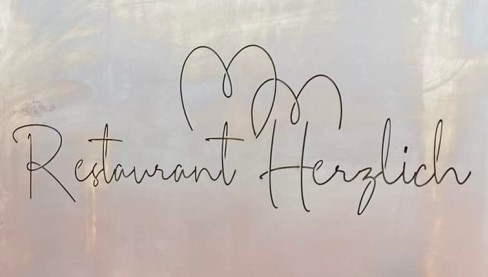 Restaurant Herzlich